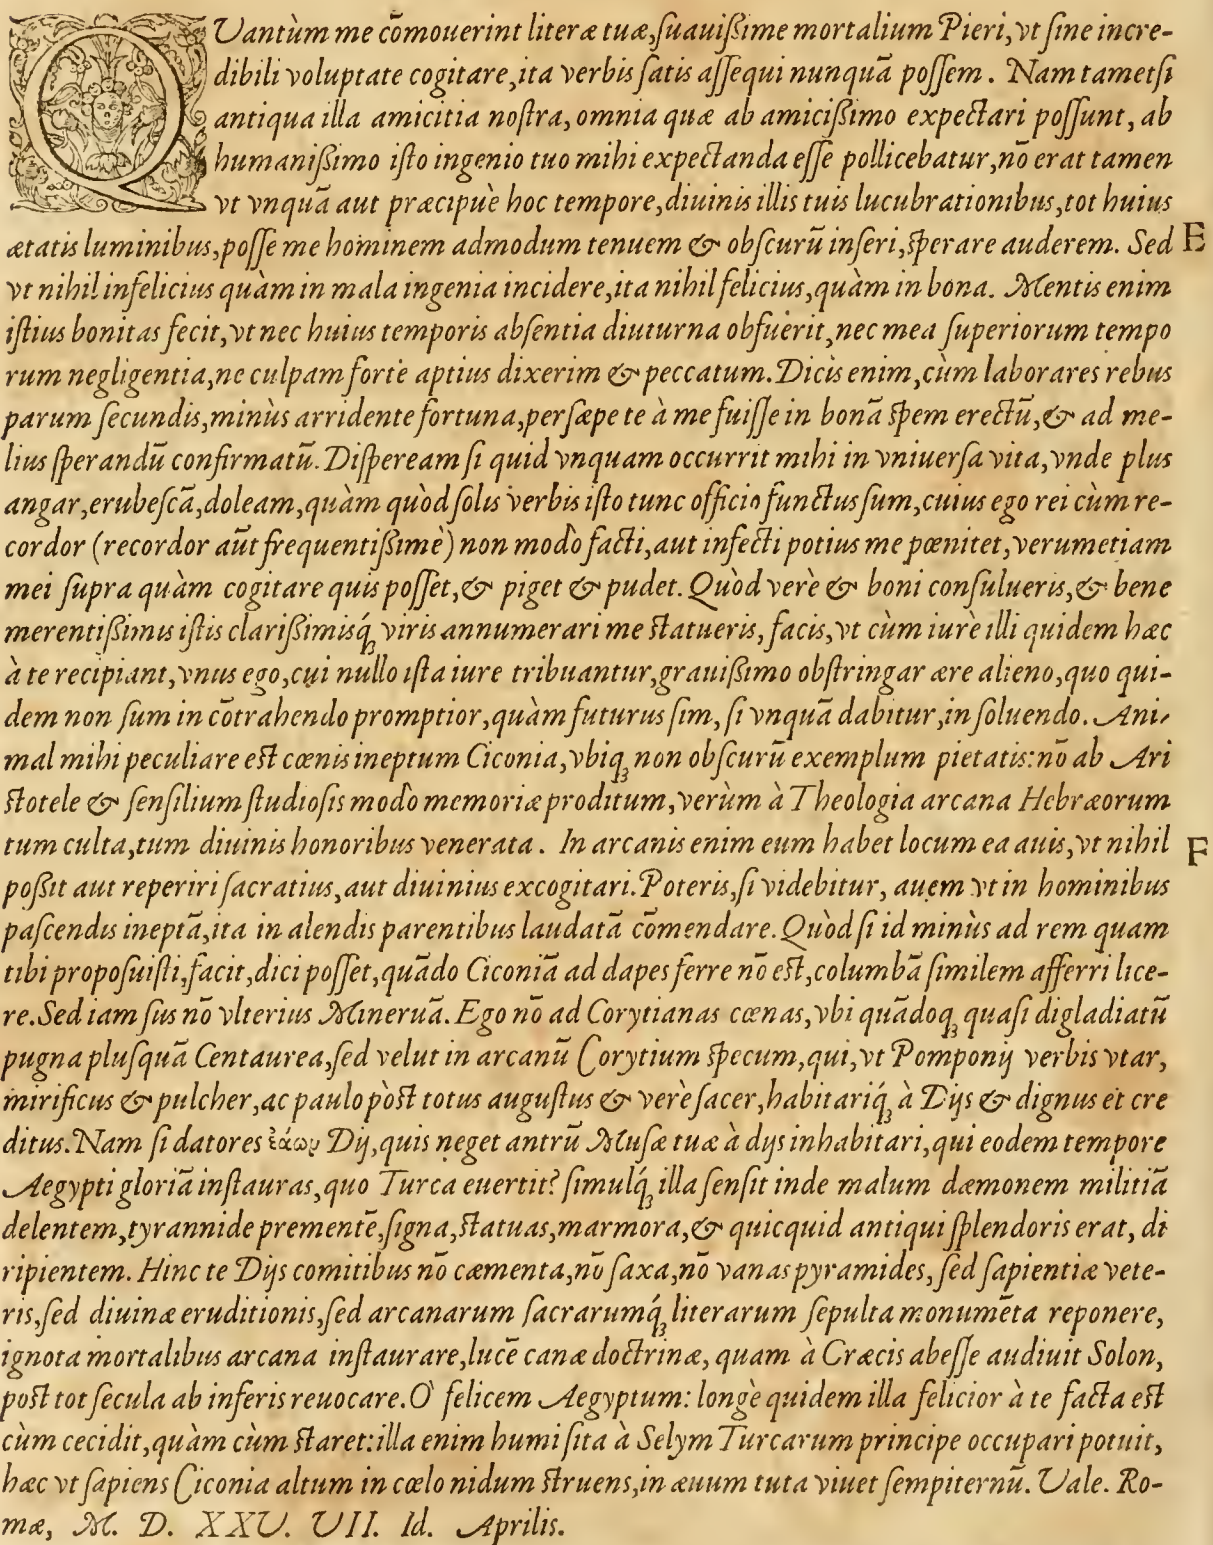 QVantùm me cõmouerint literæ tuæ, suauißime mortalium Pieri, vt sine incre-
dibili voluptate cogitare, ita verbis satis assequi nunquã possem. Nam tametsi
antiqua illa amicitia nostra, omnia quæ ab amicißimo expectari possunt, ab
humanißimo isto ingenio tuo mihi expectanda esse pollicebatur, nõ erat tamen
vt vnquã aut præcipuè hoc tempore, diuinis illis tuis lucubrationibus, tot huius
ætatis luminibus, posse me hominem admodum tenuem & obscurũ inseri, sperare auderem. Sed E
vt nihil infelicius quàm in mala ingenia incidere, ita nihil felicius, quàm in bona. Mentis enim
istius bonitas fecit, vt nec huius temporis absentia diuturna obfuerit, nec mea superiorum tempo
rum negligentia, ne culpam forte aptius dixerim & peccatum. Dicis enim, cùm laborares rebus
parum secundis, minùs arridente fortuna, persæpe te à me fuisse in bonã spem erectũ, & ad me-
lius sperandũ confirmatũ. Dispeream si quid vnquam occurrit mihi in vniuersa vita, vnde plus
angar, erubescã, doleam, quàm quòd solis verbis isto tunc officio functus sum, cuius ego rei cùm re-
cordor (recordor aũt frequentißimè) non modò facti, aut infecti potius me pœnitet, verumetiam
mei supra quàm cogitare quis posset, & piget & pudet. Quòd verè & boni consulueris, & bene
merentißimis istis clarißimisq́ꝫ viris annumerari me statueris, facis, vt cùm iure illi quidem hæc
à te recipiant, vnus ego, cui nullo ista iure tribuantur, grauißimo obstringar ære alieno, quo qui-
dem non sum in cõtrahendo promptior, quàm futurus sim, si vnquã dabitur, in soluendo. Ani-
mal mihi peculiare est cœnis ineptum Ciconia, vbiqꝫ non obscurũ exemplum pietatis: nõ ab Ari
stotele & sensilium studiosis modò memoriæ proditum, verùm à Theologia arcana Hebræorum
tum culta, tum diuinis honoribus venerata. In arcanis enim eum habet locum ea auis, vt nihil F
poßit aut reperiri sacratius, aut diuinius excogitari. Poteris, si videbitur, auem vt in hominibus
pascendis ineptã, ita in alendis parentibus laudatã cõmendare. Quòd si id minùs ad rem quam
tibi proposuisti, facit, dici posset, quãdo Ciconiã ad dapes ferre nõ est, columbã similem afferri lice-
re. Sed iam sus nõ vlterius Mineruã. Ego nõ ad Corytianas cœnas, vbi quãdoqꝫ quasi digladiatũ
pugna plusquã Centaurea, sed velut in arcanũ Corytium specum, qui, vt Pomponij verbis vtar,
mirificus & pulcher, ac paulo pòst totus augustus & verè sacer, habitariq́ꝫ à Dijs & dignus et cre
ditus. Nam si datores ἑάων Dij, quis neget antrũ Musæ tuæ à dijs inhabitari, qui eodem tempore
Aegypti gloriã instauras, quo Turca euertit? simulq́ꝫ illa sensit inde malum dæmonem militiã
delentem, tyrannide prementẽ, signa, statuas, marmora, & quicquid antiqui splendoris erat, di
ripientem. Hinc te Dijs comitibus nõ cæmenta, nõ saxa, nõ vanas pyramides, sed sapientiæ vete-
ris, sed diuinæ eruditionis, sed arcanarum sacrarumq́ꝫ literarum sepulta monumẽta reponere,
ignota mortalibus arcana instaurare, lucẽ canæ doctrinæ, quam à Græcis abesse audiuit Solon,
post tot secula ab inferis reuocare. O felicem Aegyptum: longè quidem illa felicior à te facta est
cùm cecidit, quàm cùm staret: illa enim humi sita à Selym Turcarum principe occupari potuit,
hæc vt sapiens Ciconia altum in cœlo nidum struens, in æuum tuta viuet sempiternũ. Vale. Ro-
mæ, M. D. XXV. VII. Id. Aprilis.